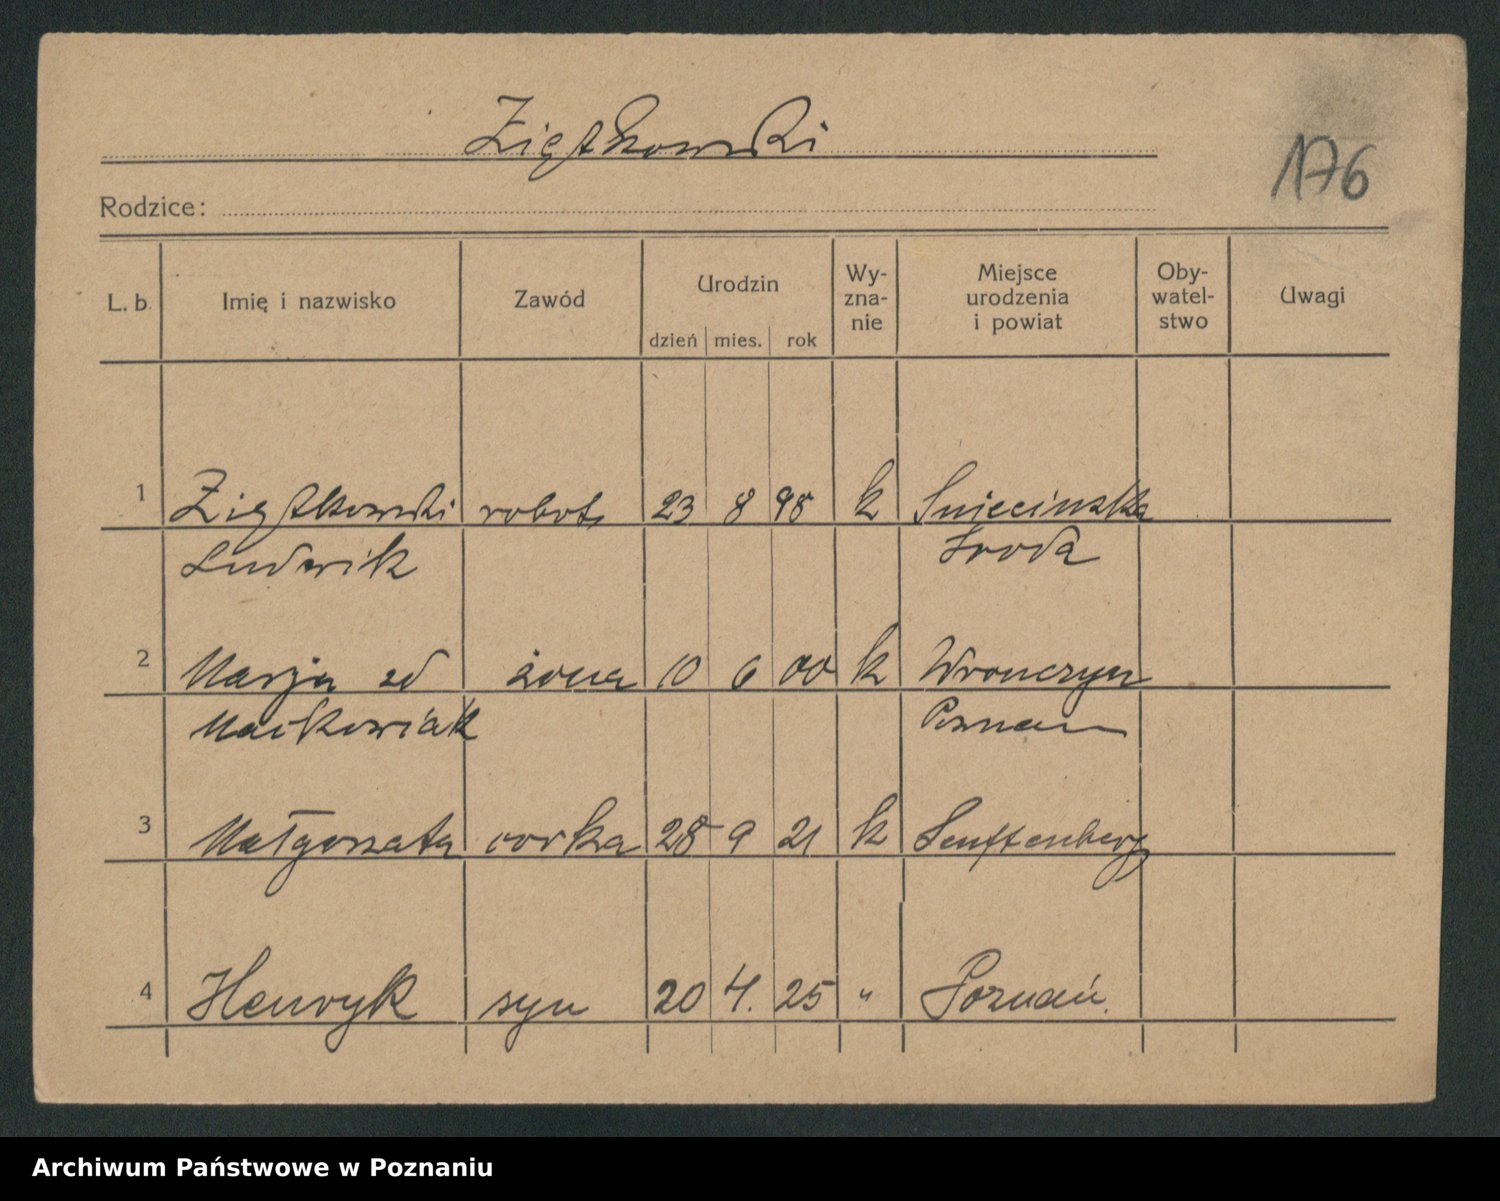 Ziętkowski
176
Rodzice:
L. b. Imię i nazwisko Zawód Urodzin dzień mies. rok Wy-zna-nie Miejsce urodzenia i powiat Oby-watel-stwo Uwagi
1 Ziętkowski robot. 23 8 98 k Snieciska
Ludwik Sroda
2 Marja zd żona 10 6 00 k Wronczyn
Maćkowiak Poznan
3 Małgorzata corka 28 9 21 k Senftenberg
4 Henryk syn 20 4. 25 " Poznań.
Archiwum Państwowe w Poznaniu